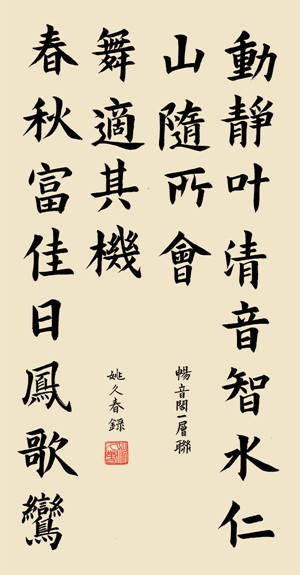 動靜叶清音智水仁
山隨所會
暢音閣一層聯
春秋富佳日鳳歌鸞
舞適其機
姚久春錄